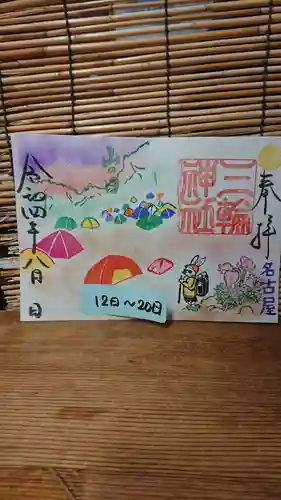 奉拝
名古屋
三輪
神社
山の日
令和四年八月 日
12日〜20日